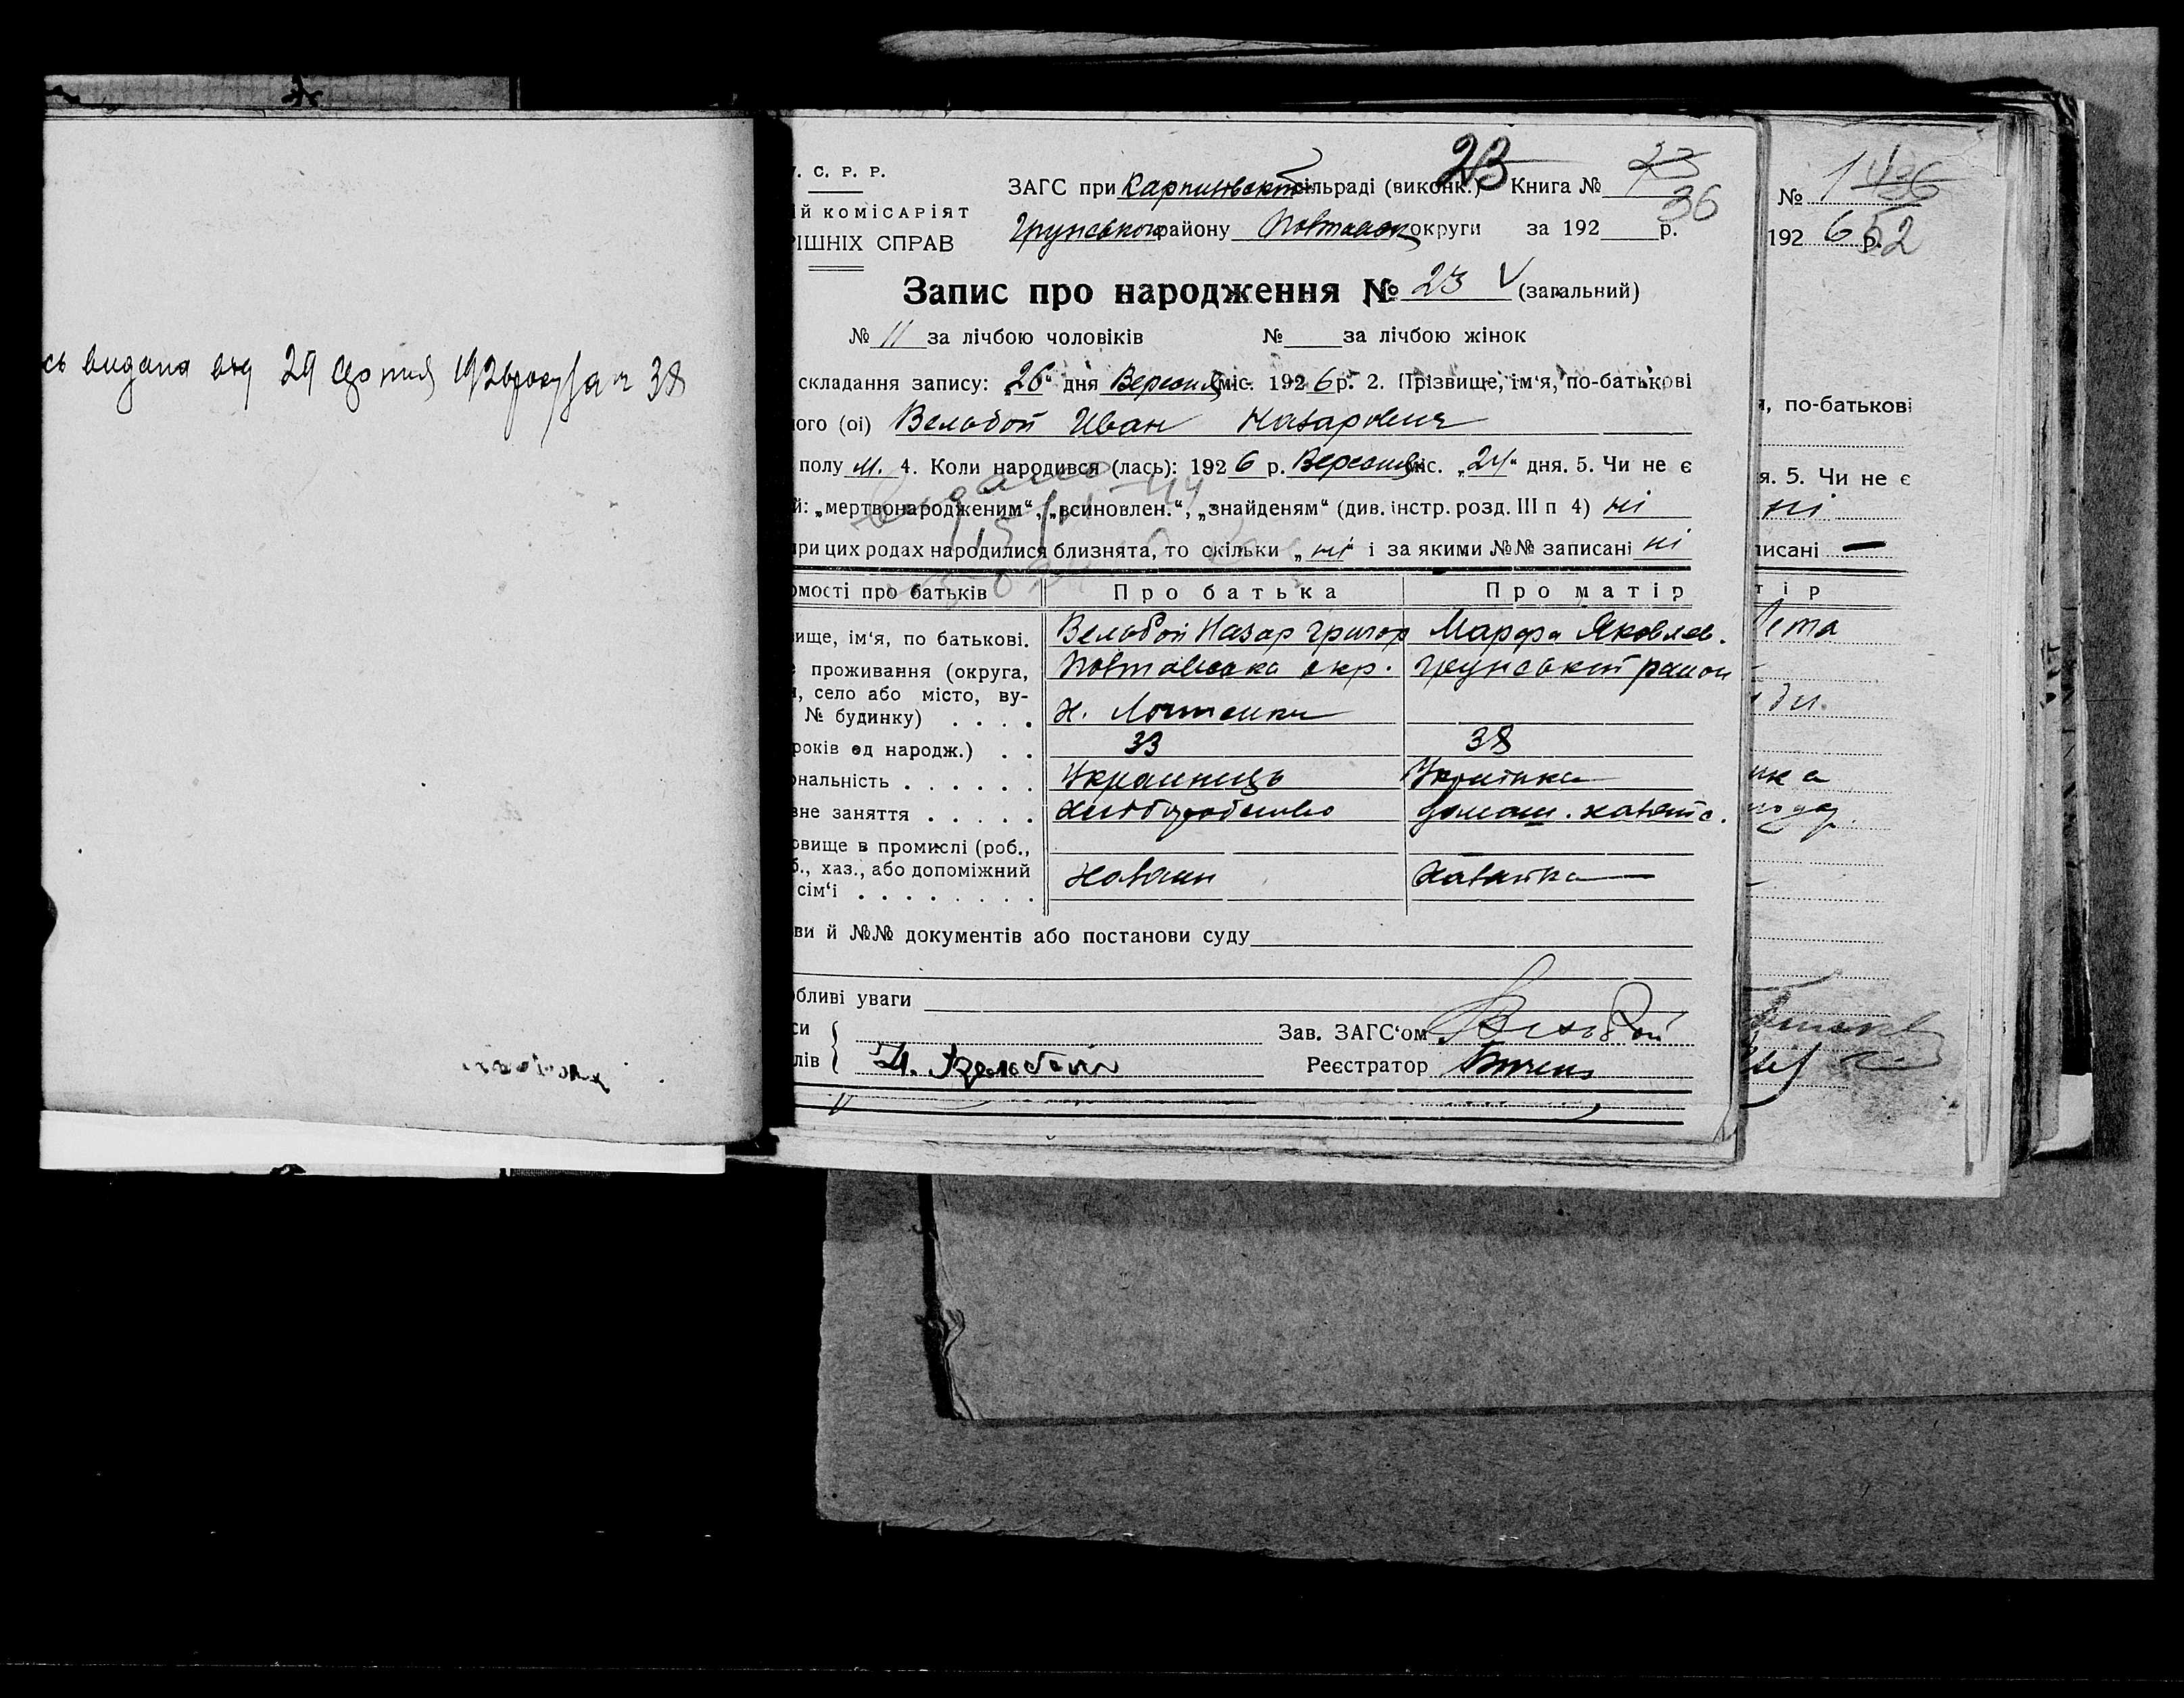 видана від 29 серпня 1926 року за № 38
У. С. Р. Р.
ій КОМІСАРІЯТ
РІШНІХ СПРАВ
23
ЗАГС при Карпилівській сільраді (виконк.) Книга № 23
36
Грунського району Полтавськ округи за 192 р.
Запис про народження № 23 V (загальний)
№ 11 за лічбою чоловіків № за лічбою жінок
складання запису: „26“ дня Вересня міс. 1926 р. 2. Прізвище, ім‘я, по-батькові
ого (ої) Вельбой Иван Назарович
полу м. 4. Коли народився (лась): 1926 р. Вересня міс. „24“ дня. 5. Чи не є
й: „мертвонародженим“, „всиновлен.“, „знайденям“ (див. інстр. розд. III п 4) ні
при цих родах народилися близнята, то скільки „ні“ і за якими №№ записані ні
Видано
омості про батьків Про батька Про матір
вище, ім‘я, по батькові. Вельбой Назар Григор Марфа Яковлев.
е проживання (округа, Полтавська окр. Грунський район
н, село або місто, ву-
№ будинку) . . . . х.
років од народж.) . . 33 38
ональність . . . . . . Украинець Украінка
вне заняття . . . . . Хліборобство домаш. хазяйс.
овище в промислі (роб.,
б., хаз., або допоміжний Хазяин Хазяйка
сім‘ї . . . . . . . .
ви й №№ документів або постанови суду
обливі уваги
си Зав. ЗАГС‘ом Вельбой
лів Н. Вельбой Реєстратор
№ 1 436
1926 р. 52
я, по-батькові
я. 5. Чи не є
ні
писані —
тір